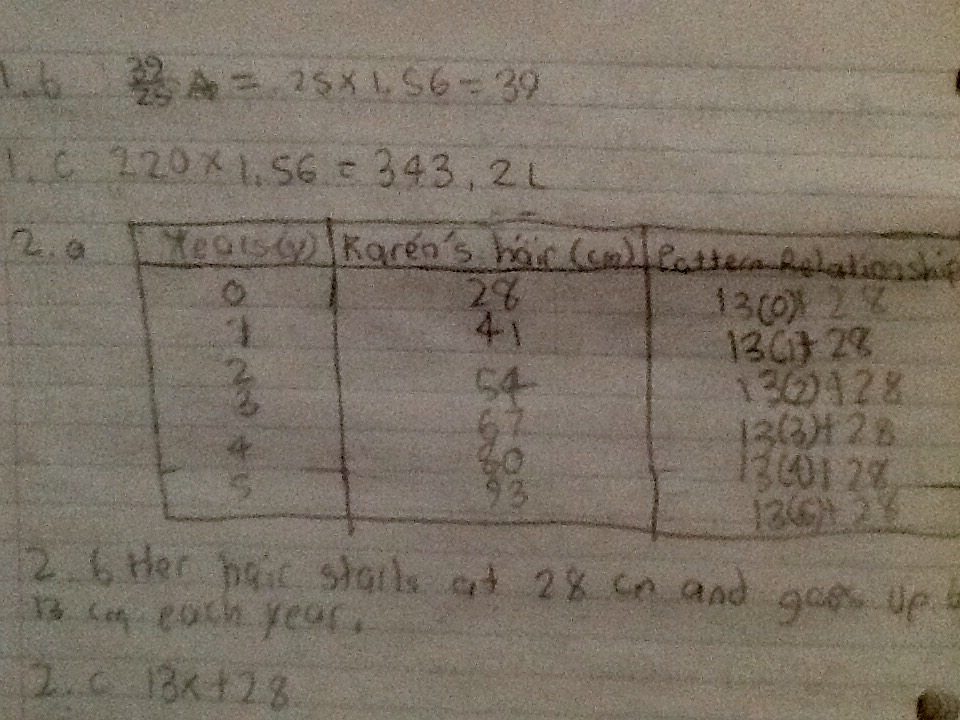 1.b 39/25 = .25×1.56=39
1.c 220×1.56=343.2L
2.a Years(y) Karen's hair (cm) Pattern Relationship
0 28 13(0)+28
1 41 13(1)+28
2 54 13(2)+28
3 67 13(3)+28
4 80 13(4)+28
5 93 13(5)+28
2.b Her hair starts at 28 cm and goes up
13 cm each year.
2.c 13x+28